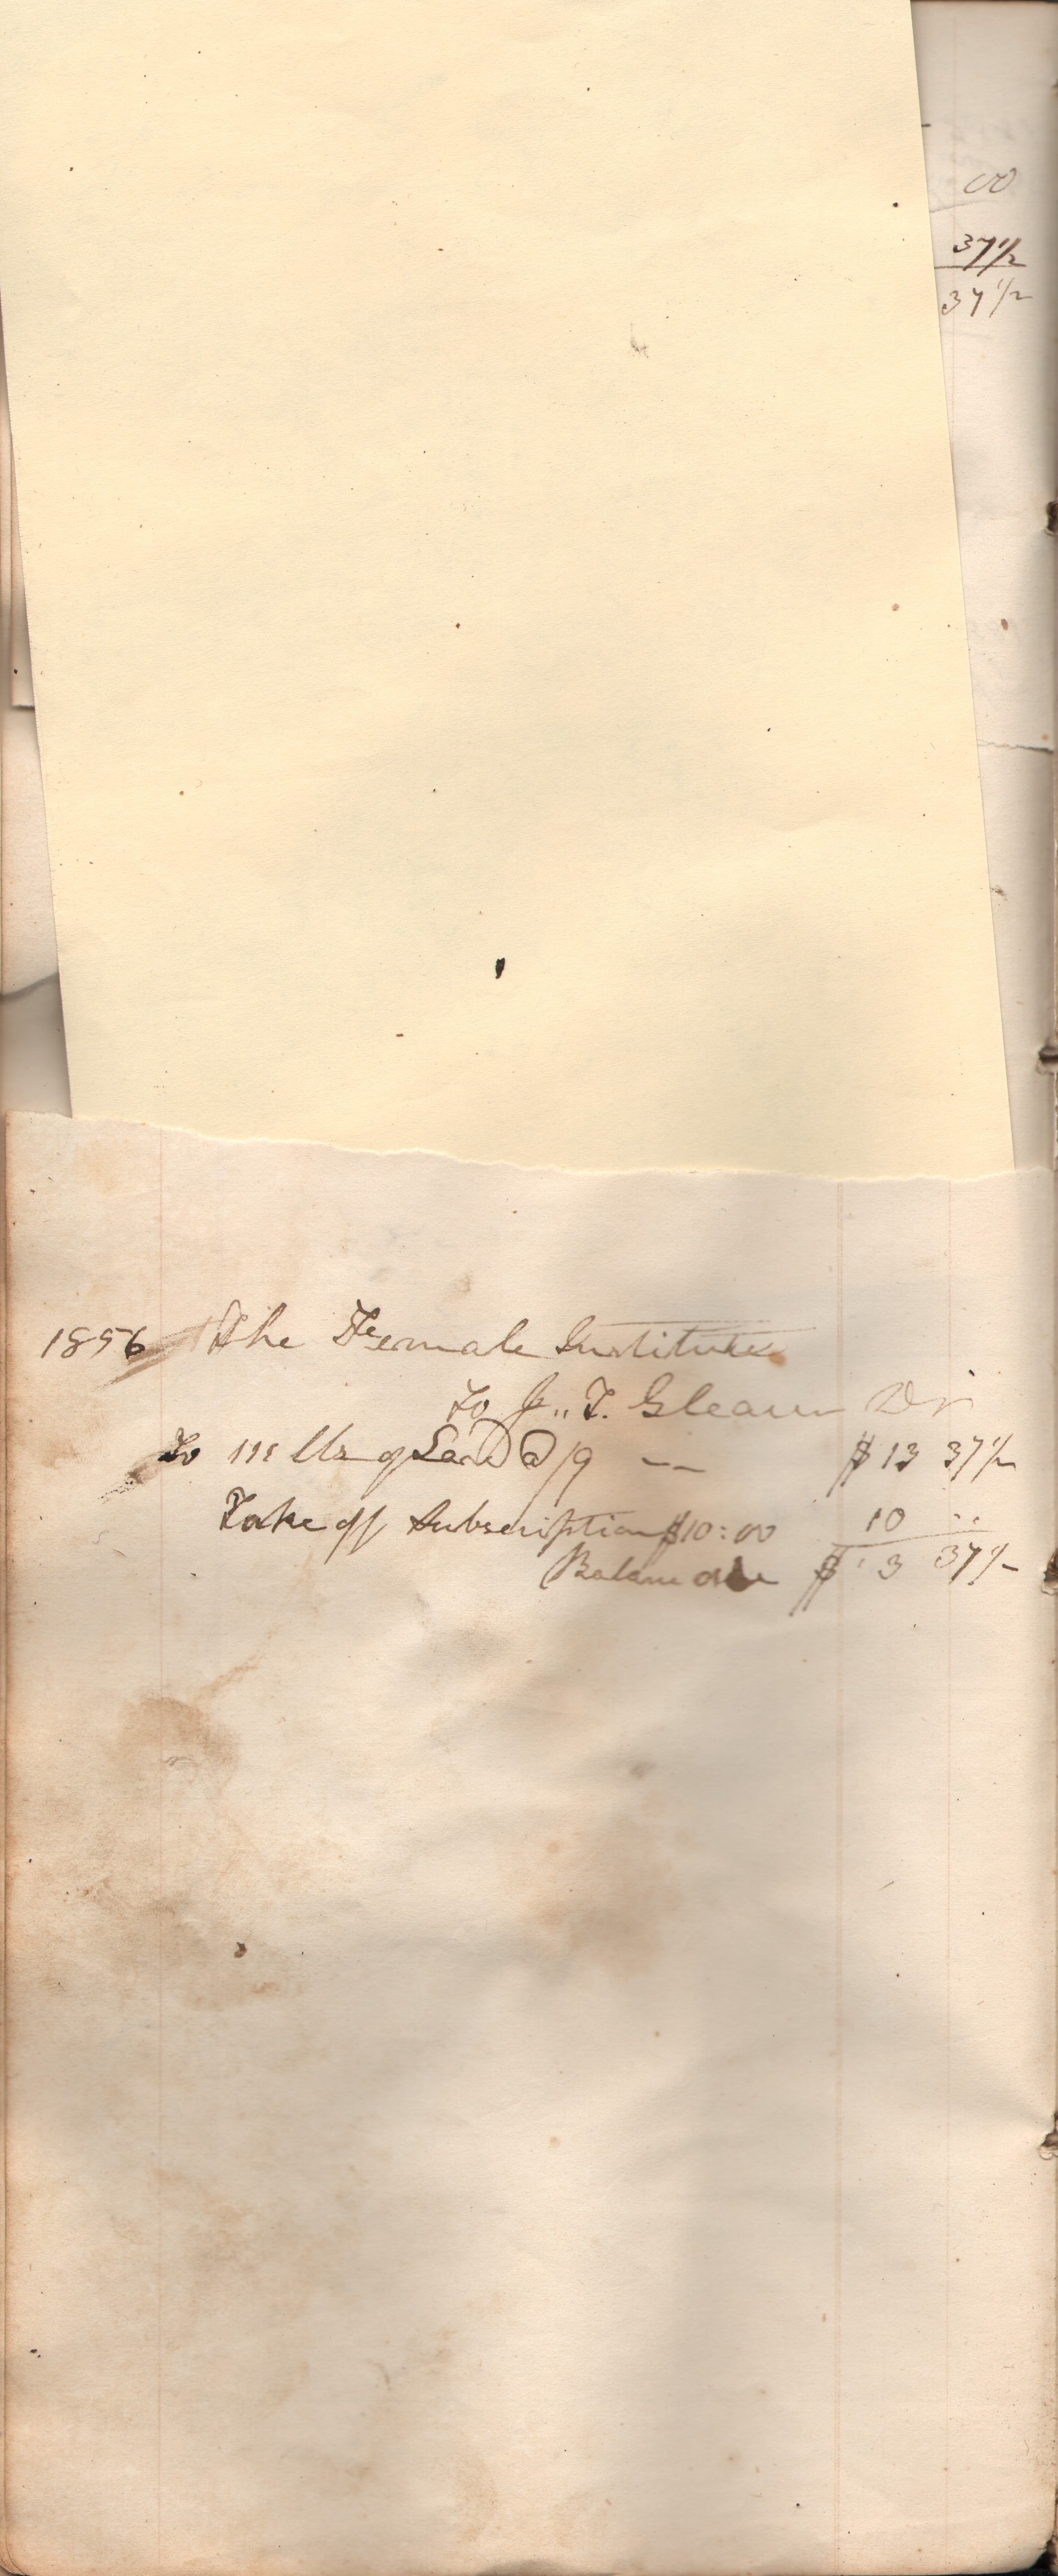 00
37 1/2
37 1/2
1856 The Female Institute
To J,, T. Glenn Dr
To 111 lbs of Lard @ /9 -- $ 13 37 1/2
Take off Subscription $10:00 10 ..
Balance due $ 3 37 1/2